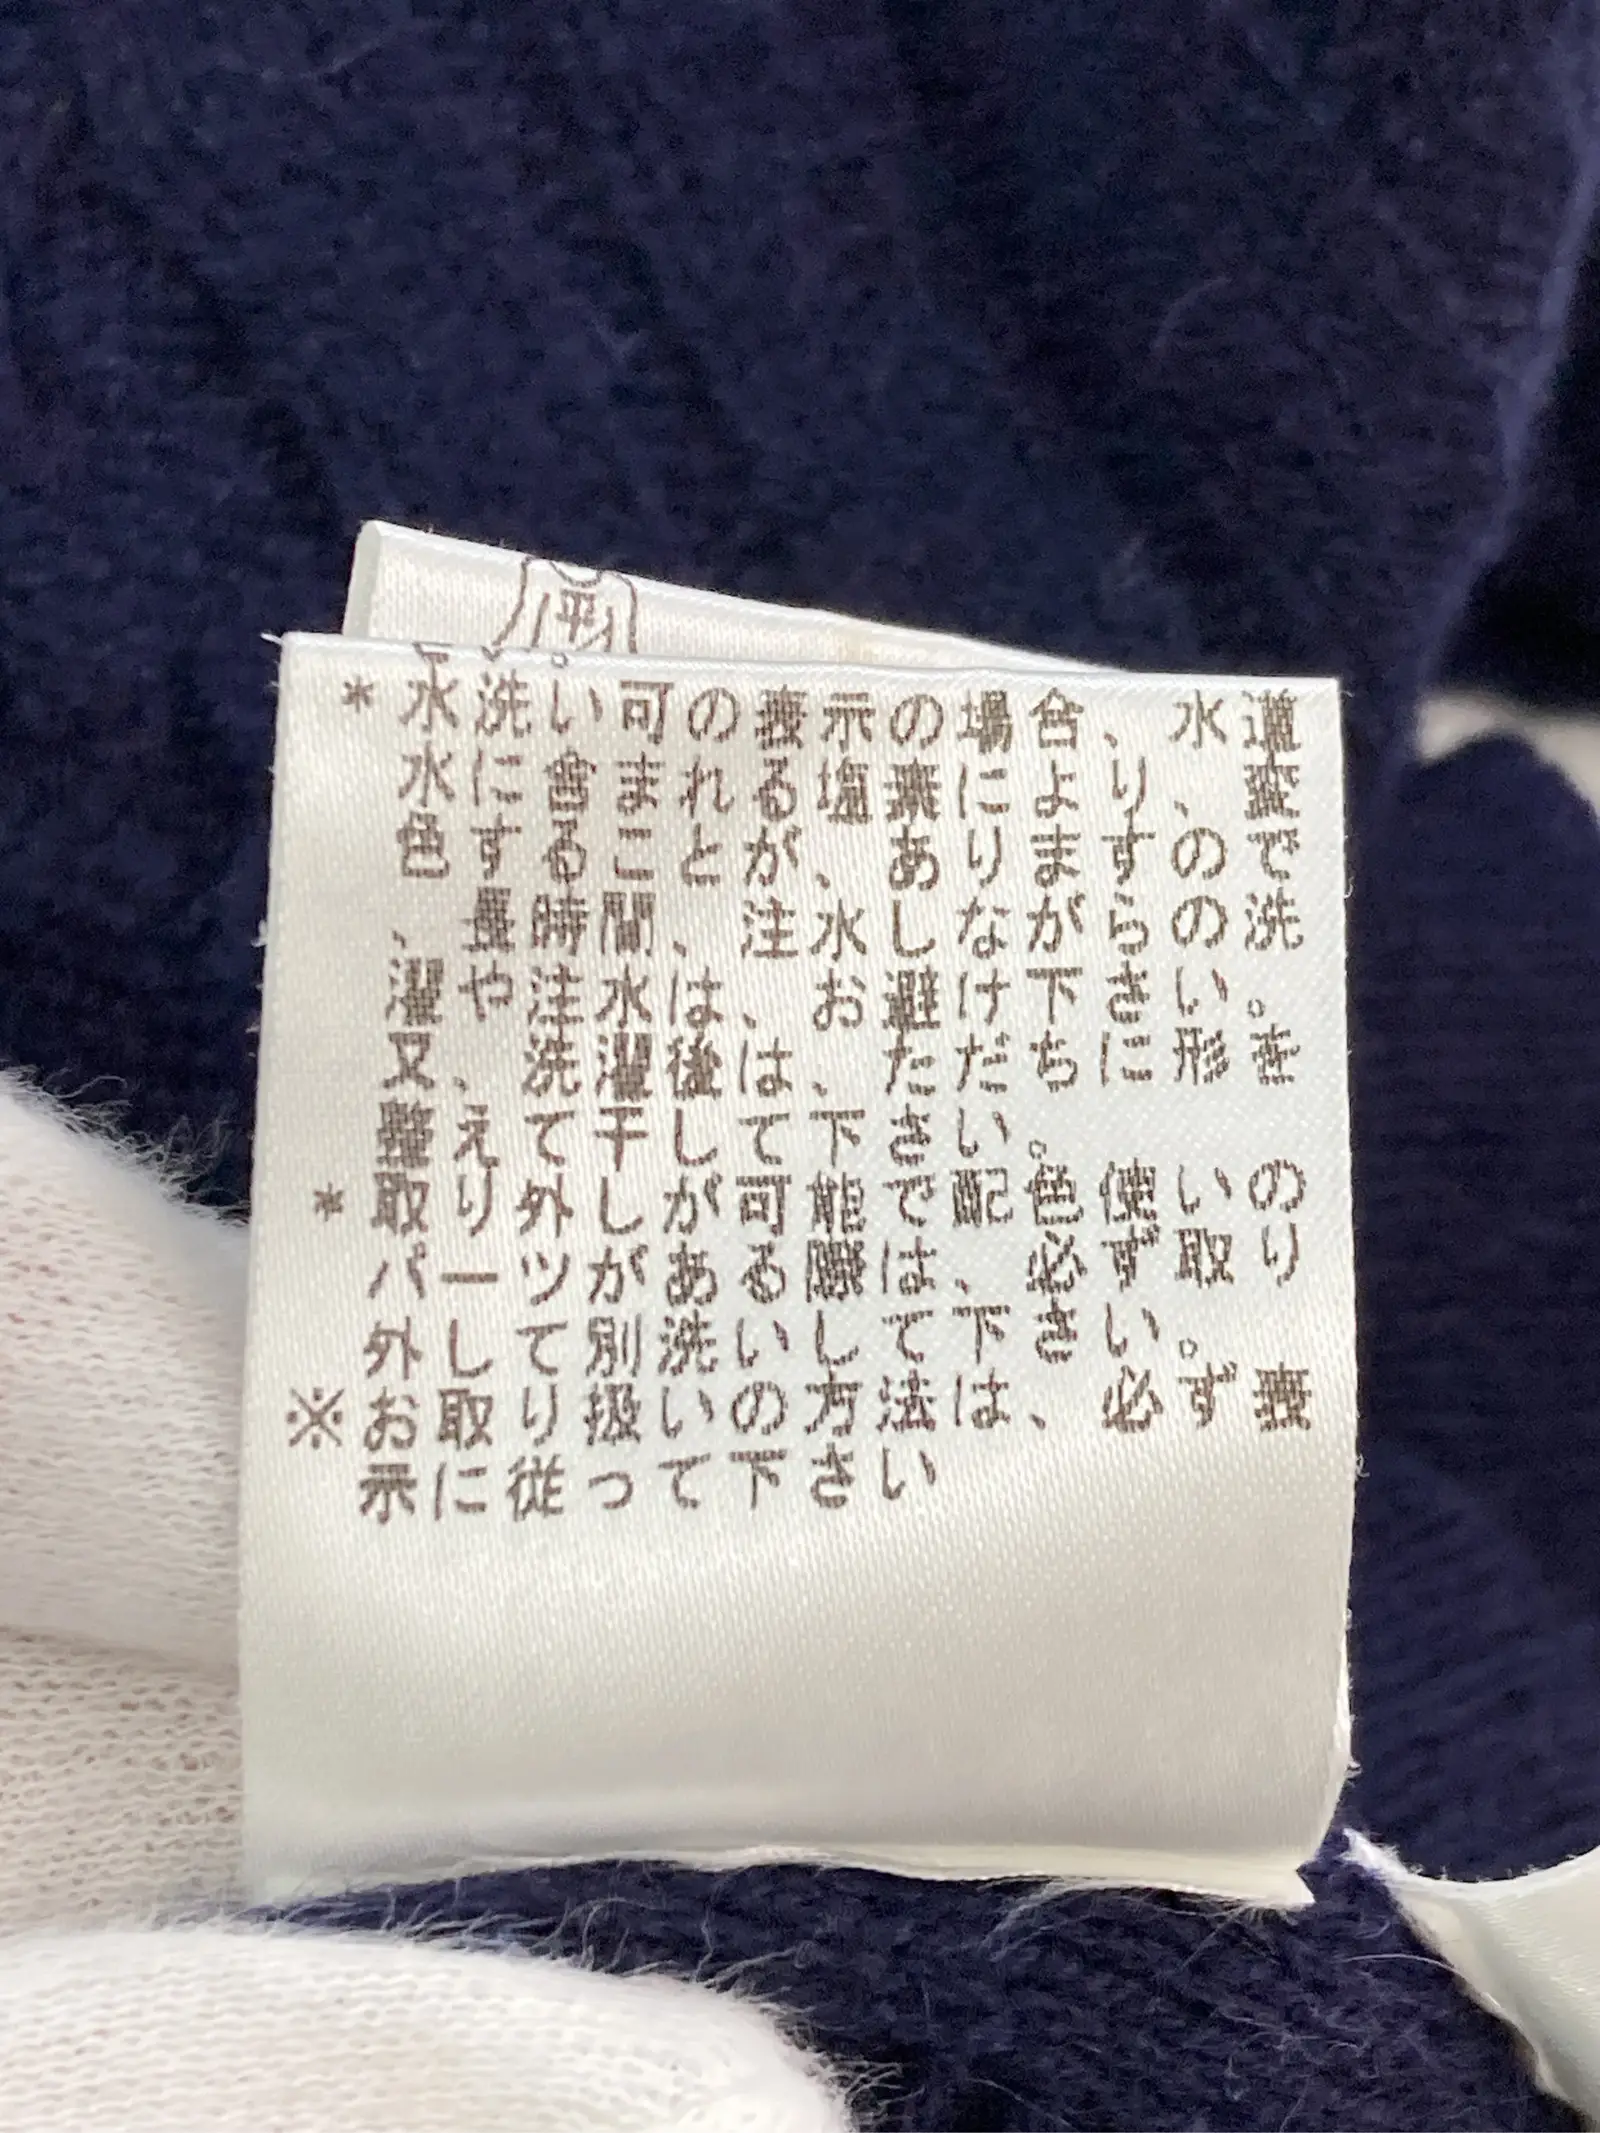 平
*水洗い可の表示の場合、水道
水に含まれる塩素により、変
色することが、ありますので
、長時間、注水しながらの洗
濯や注水は、お避け下さい。
又、洗濯後は、ただちに形を
整えて干して下さい。
*取り外しが可能で配色使いの
パーツがある際は、必ず取り
外して別洗いして下さい。
※お取り扱いの方法は、必ず表
示に従って下さい